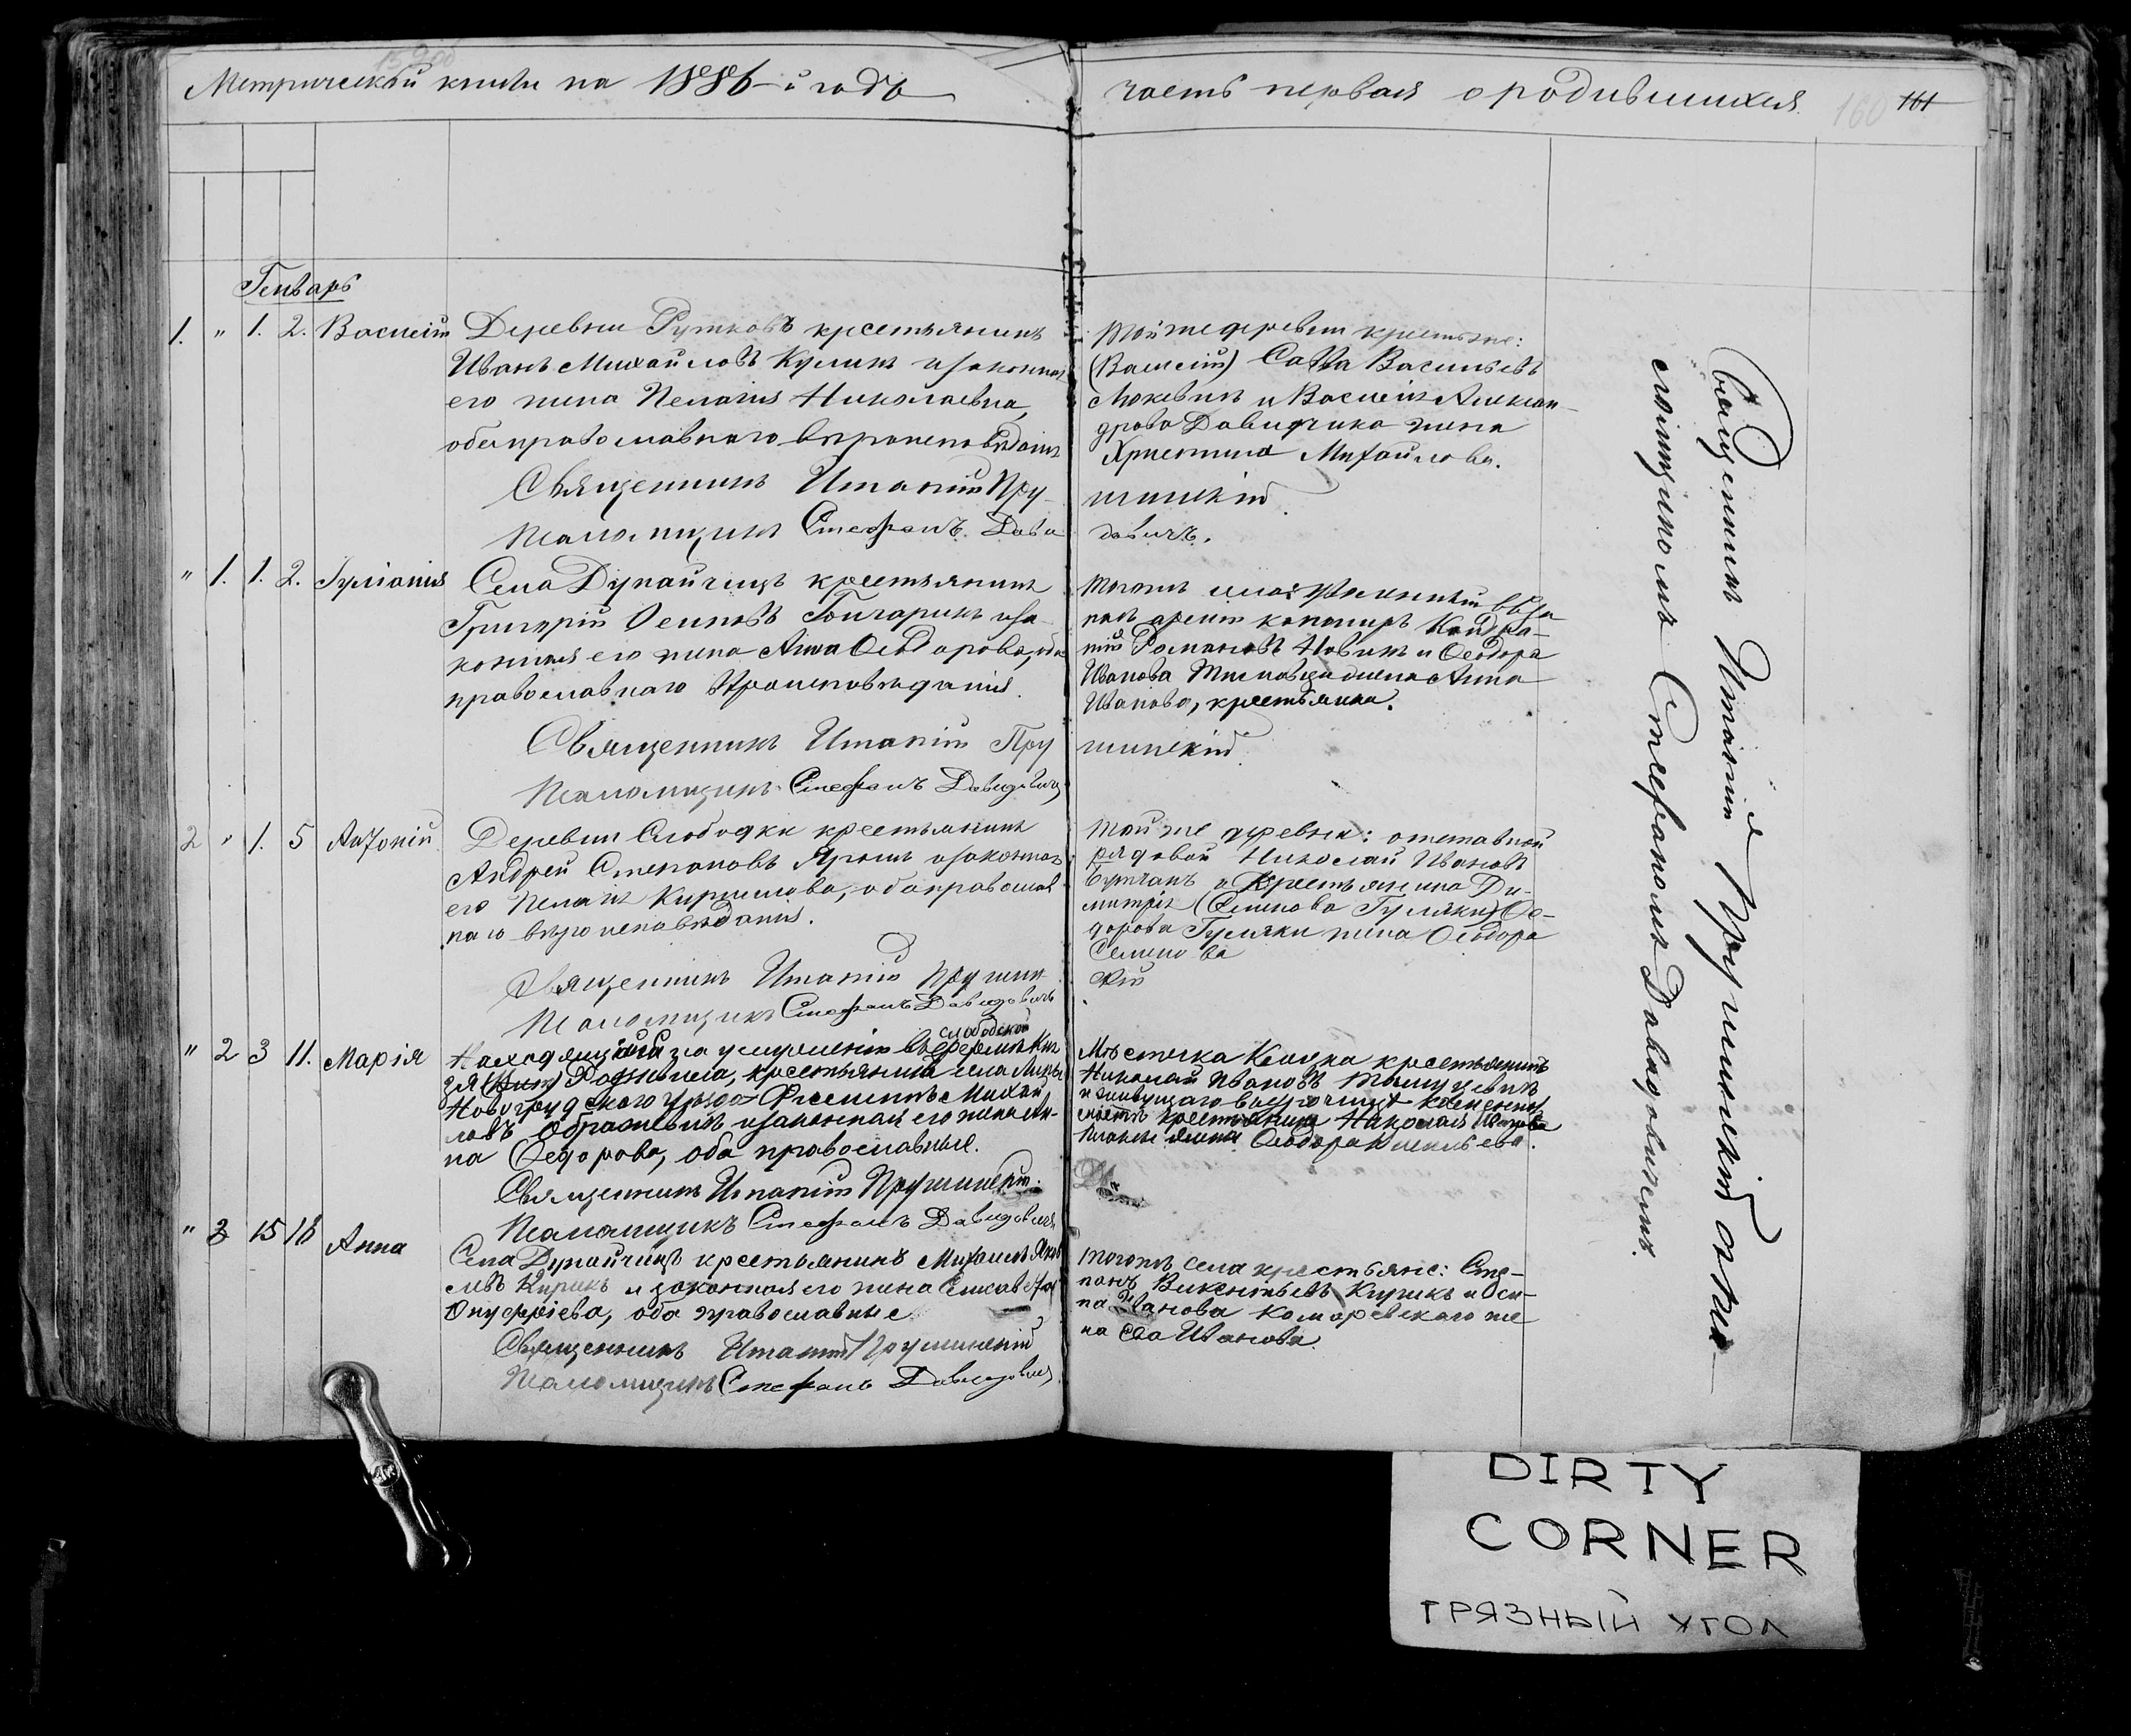 Метрической книги на 1886-й годъ
часть первая о родившихся.
160 161
Генварь
1. " 1. 2. Василій
Деревни Рутковъ крестьянинъ
Иванъ Михайловъ Куликъ и законная
его жена Пелагія Николаевна,
оба православнаго вѣроисповѣданія
Священникъ Ипатій Пру
Псаломщикъ Стефанъ Дави
Той же деревни крестьяне:
(Василій) Савва Васильевъ
и Василія Алексан-
дрова Давидчика жена
Христина Михайлова.
шинскій
довичъ.
" 1. 1. 2. Іуліанія
Села Дунайчицъ крестьянинъ
Григорій Осиповъ Гончарикъ и за-
конная его жена Анна Ѳеодорова, оба
православнаго вѣроисповѣданія.
Священникъ Ипатій Пру
Псаломщикъ Стефанъ Давидовичъ
Тогожъ села:
Романовъ Новикъ и Ѳеодора
Иванова жена Анна
Иванова, крестьяне.
шинскій
2 " 1. 5 Антоній
Деревни Слободки крестьянинъ
Андрей Степановъ Ярошъ и законная
его Пелагія Кириллова, оба православ-
наго вѣроисповѣданія.
Священникъ Ипатій Прушин
Псаломщикъ Стефанъ Давидовичъ
Той же деревни: отставной
рядовой Николай Ивановъ
и крестьянина Ди-
митрія (Семенова Гуляки) Ѳе-
дорова Гуляки жена Ѳеодора
Семенова
скій
" 2 3 11. Марія
слободской
Находящійся за услуженіи въ фермѣ Кня
зя Радзивила, крестьянинъ села
Новогрудскаго уѣзда Михай
ловъ и законная его жена
на Ѳедорова, оба православные.
Священникъ Ипатій Прушинскій.
Псаломщикъ Стефанъ Давидовичъ
Мѣстечка Клецка крестьянинъ
Николай Ивановъ
и живущаго
крестьянина Николая Иванова
жена Ѳеодора
" 3 15 16 Анна
Села Дунайчицъ крестьянинъ Михаилъ Яков
левъ Кирикъ и законная его жена Елисавета
Онуфріева, оба православные.
Священникъ Ипатій Прушинскій
Псаломщикъ Стефанъ Давидовичъ
Тогожъ села крестьяне: Сте-
панъ Викентьевъ Кирикъ и Оси-
па Иванова Комаревскаго же
на Ева Иванова.
Священникъ Ипатій Прушинскій съ пса-
ломщикомъ Стефаномъ Давидовичемъ.
DIRTY
CORNER
ГРЯЗНЫЙ УГОЛ